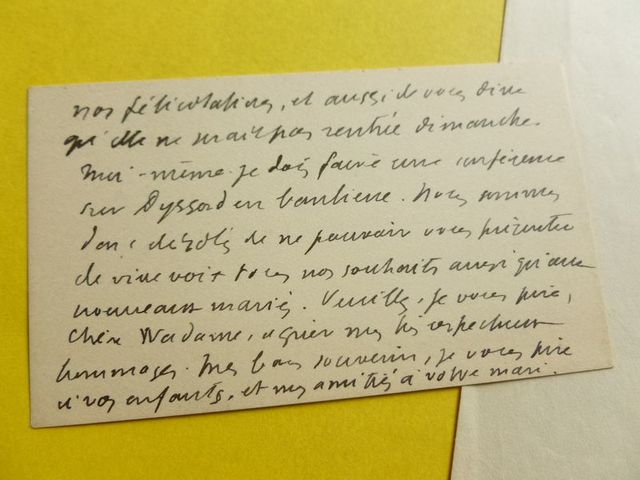 nos félicitations, et aussi de vous dire
qu'elle ne serait pas rentrée dimanche.
Moi-même je dois faire une conférence
sur en banlieue. Nous sommes
donc désolés de ne pouvoir vous présenter
de vive voix tous nos souhaits ainsi qu'aux
nouveaux mariés. Veuillez, je vous prie,
chère Madame, agréer mes très respectueux
hommages. Mes bons souvenirs, je vous prie
à vos enfants, et mes amitiés à votre mari.